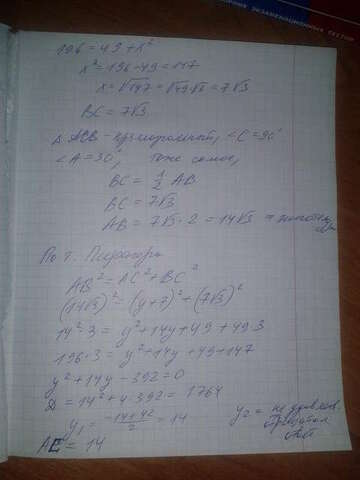 ЭКЗАМЕНАЦИОННЫХ ТЕСТОВ
196 = 49 + x²
x² = 196 - 49 = 147
x = √147 = √49·√3 = 7√3
BC = 7√3
Δ ACB - прямоугольный, ∠C = 90°
∠A = 30°, тоже самое,
BC = 1/2 AB
BC = 7√3
AB = 7√3 · 2 = 14√3
По т. Пифагора
AB² = AC² + BC²
(14√3)² = (y+7)² + (7√3)²
14²·3 = y² + 14y + 49 + 49·3
196·3 = y² + 14y + 49 + 147
y² + 14y - 392 = 0
D = 14² + 4·392 = 1764
y₁ = (-14+42)/2 = 14 y₂ = не удовлев.
AE = 14